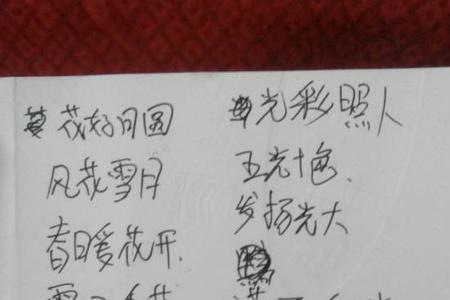 花好月圆
风花雪月
春日暖花开.
光彩照人
五光十色.
发扬光大